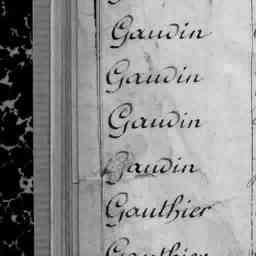 Gaudin
Gaudin
Gaudin
Gaudin
Gauthier
Gauthier